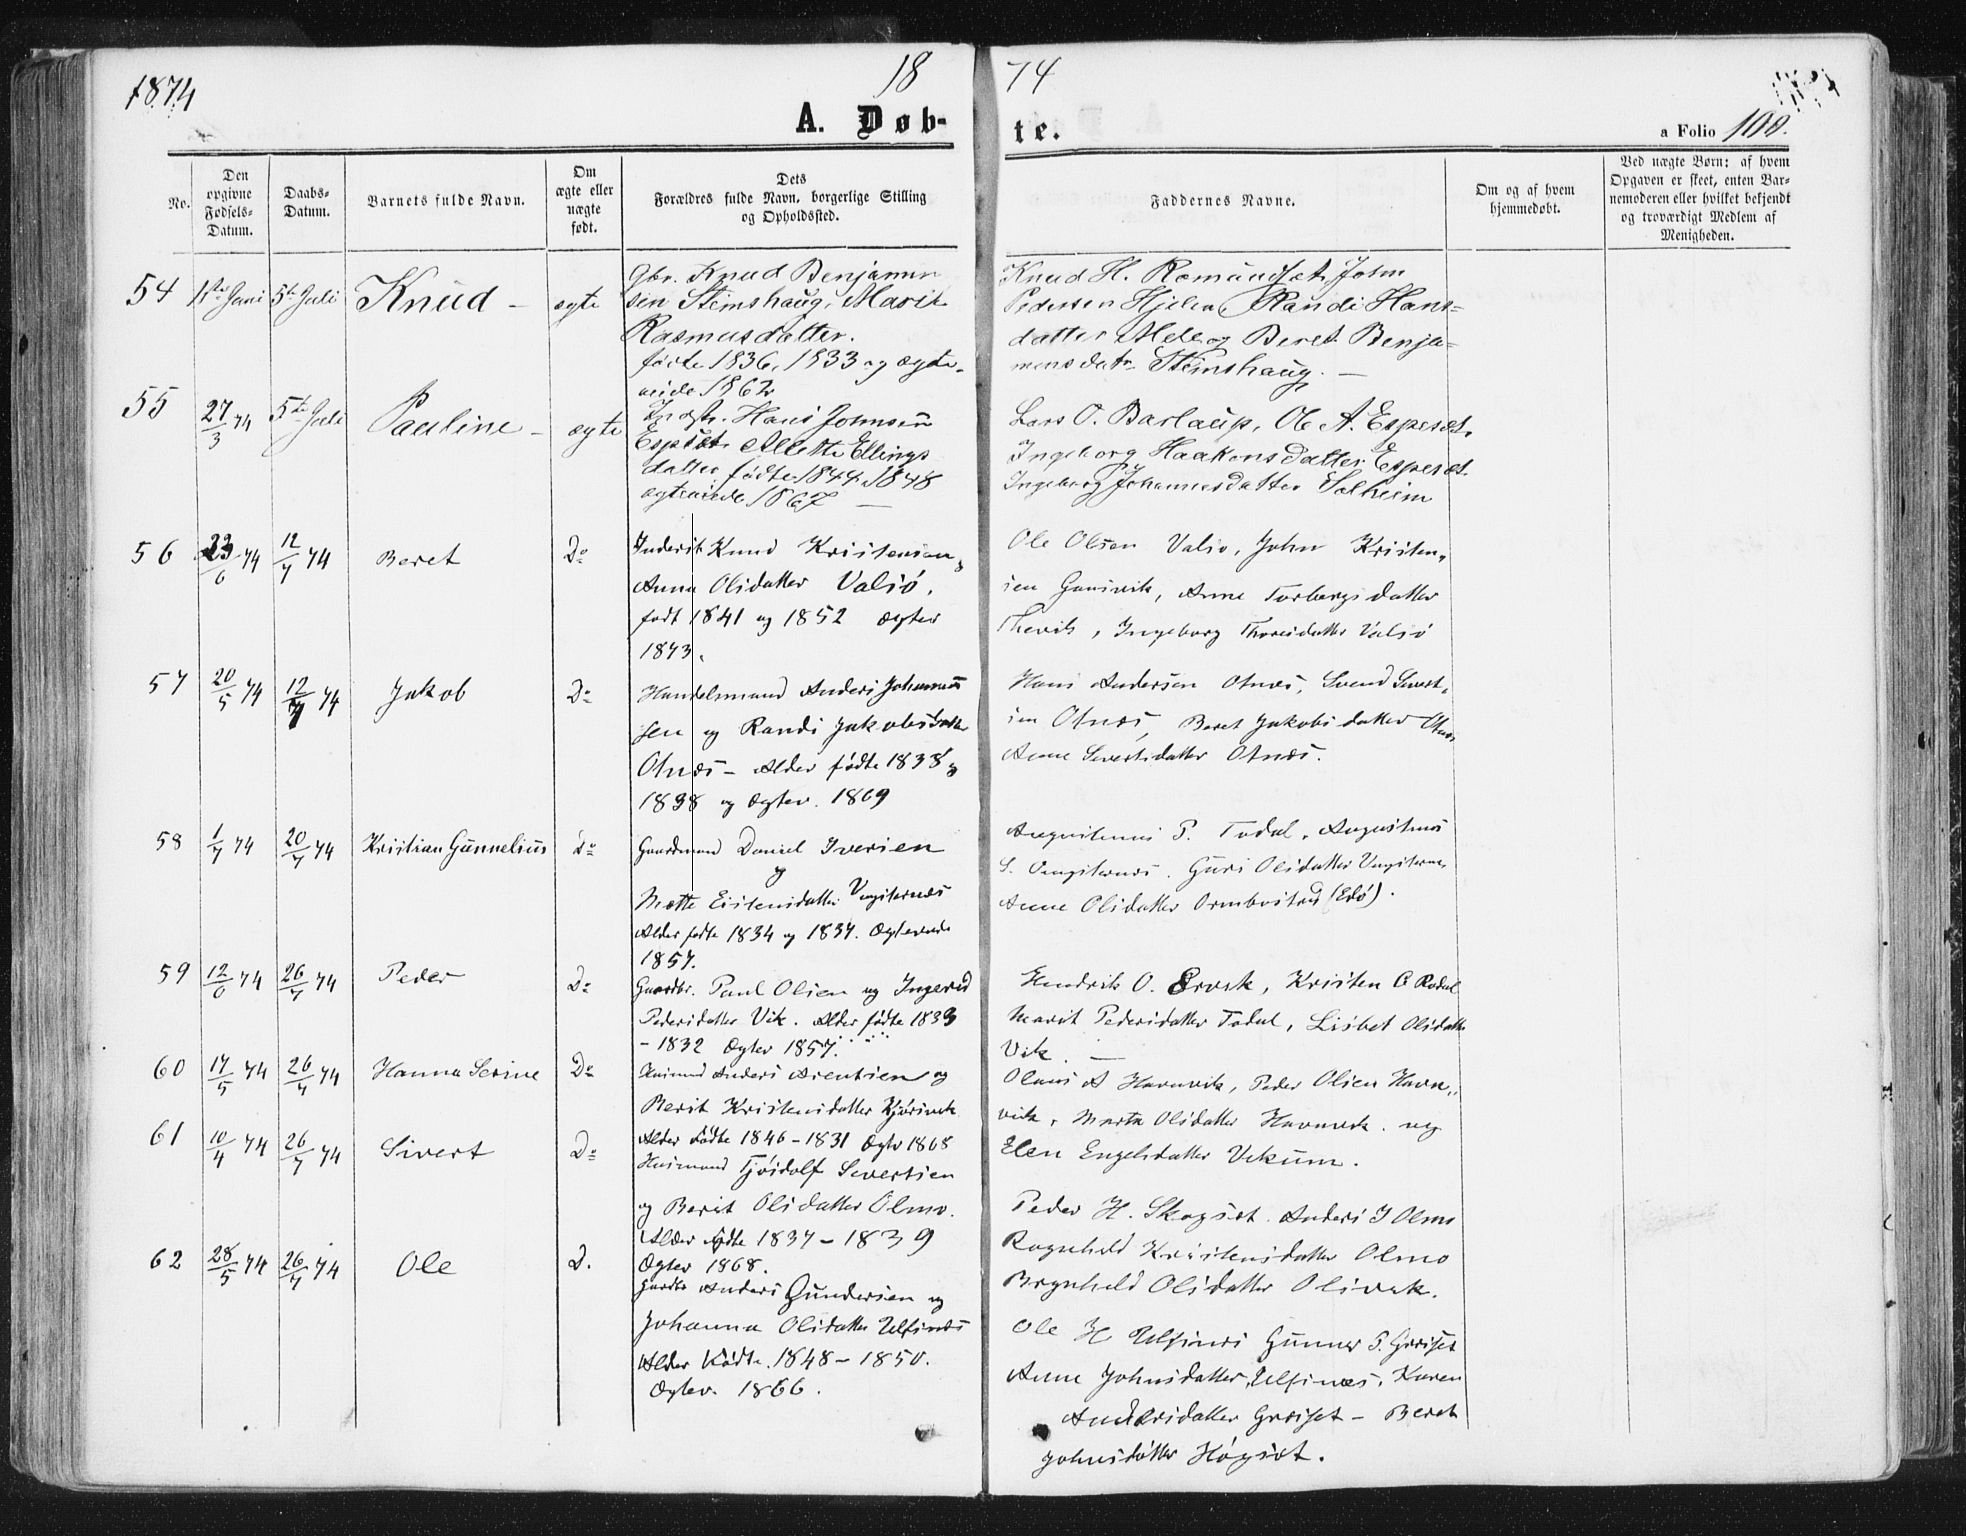 1874
18
74
A. Døb-
te.
a Folio 100.
No.
Den opgivne Fødsels-Datum.
Daabs-Datum.
Barnets fulde Navn.
Om ægte eller uægte født.
Dets Forældres fulde Navn, borgerlige Stilling og Opholdssted.
Faddernes Navne.
Om og af hvem hjemmedøbt.
Ved uægte Børn: af hvem Opgaven er skeet, enten Barnemoderen eller hvilket bekjendt og troværdigt Medlem af Menigheden.
54 1ste Juni 5te Juli Knud – ægte
Gbr. Knud Benjamin
sen Steinshaug, Marit
Rasmusdatter.
fødte 1836, 1833 og ægte-
viede 1862
Knud H. Romundset, John
Pedersen Hjelen, Randi Hans-
datter Mele og Beret Benja-
mensdatr Steinshaug. –
55 27/3 74 5te Juli Pauline – ægte
Indstr. Hans Johnsen
Espset Allette Ellings
datter fødte 1844, 1848
ægteviede 1867 –
Lars O. Barlaup, Ole A. Espeset,
Ingeborg Haakonsdatter Espeset
Ingeborg Johannesdatter Solheim
56 23/6 74 12/7 74 Beret Do
Inderst Knud Kristensen &
Anne Olsdatter Valsø.
født 1841 og 1852 ægtev
1873.
Ole Olsen Valsø, John Kristen-
sen , Anne Torbergsdatter
, Ingeborg Thoresdatter Valsø
57 20/5 74 12/7 74 Jakob Do
Handelsmand Anders Johannes
sen og Randi Jakobsdatter
Otnæs – Alder fødte 1838 &
1838 og ægtev. 1869
Hans Andersen Otnæs, Svend Sivert-
sen Otnæs, Beret Jakobsdatter Otnæs
Anne Sivertsdatter Otnæs.
58 1/7 74 20/7 74 Kristian Gunnelius Do
Gaardmand Daniel Iversen
og
Mette Eistensdatter Vagsternæs
Alder fødte 1834 og 1837. Ægteviede
1857.
Augustinus P. Todal, Augustinus
S. . Guri Olsdatter
Anne Olsdatter Ormbostad (Edø).
59 12/6 74 26/7 74 Peder Do
Gaardbr. Paul Olsen og Ingerid
Pedersdatter Vik. Alder fødte 1833
– 1832 Ægtev 1857.
Hendrik O. , Kristen
Marit Pedersdatter Todal, Lisbet Olsdatter
Vik. –
60 17/5 74 26/7 74 Hanna Serine Do
Husmand Anders Arentsen og
Berit Kristensdatter Kjørsvik
Alder fødte 1846 – 1831 Ægtv 1868
Olaus A Havnvik, Peder Olsen Havn-
vik, Marta Olsdatter Havnvik. og
Elen Engelsdatter Vikum.
61 10/4 74 26/7 74 Sivert Do
Husmand Sivertsen
og Berit Olsdatter Olmo.
Alder fødte 1837 – 1839
Ægtev 1868.
Peder H. Skogset. Anders J Olmo
Ragnhild Kristensdatter Olmo
Olsdatter Olsvik.
62 28/5 74 26/7 74 Ole D.
Gaardbr Anders Gundersen og
Johanna Olsdatter Ulfsnæs
Alder fødte 1848 – 1850.
Ægtev. 1866.
Ole H Ulfsnes Gunner P. Grøset
Anne Johnsdatter Ulfsnæs, Karen
Andersdatter Grøset – Beret
Johnsdatter Høgset.